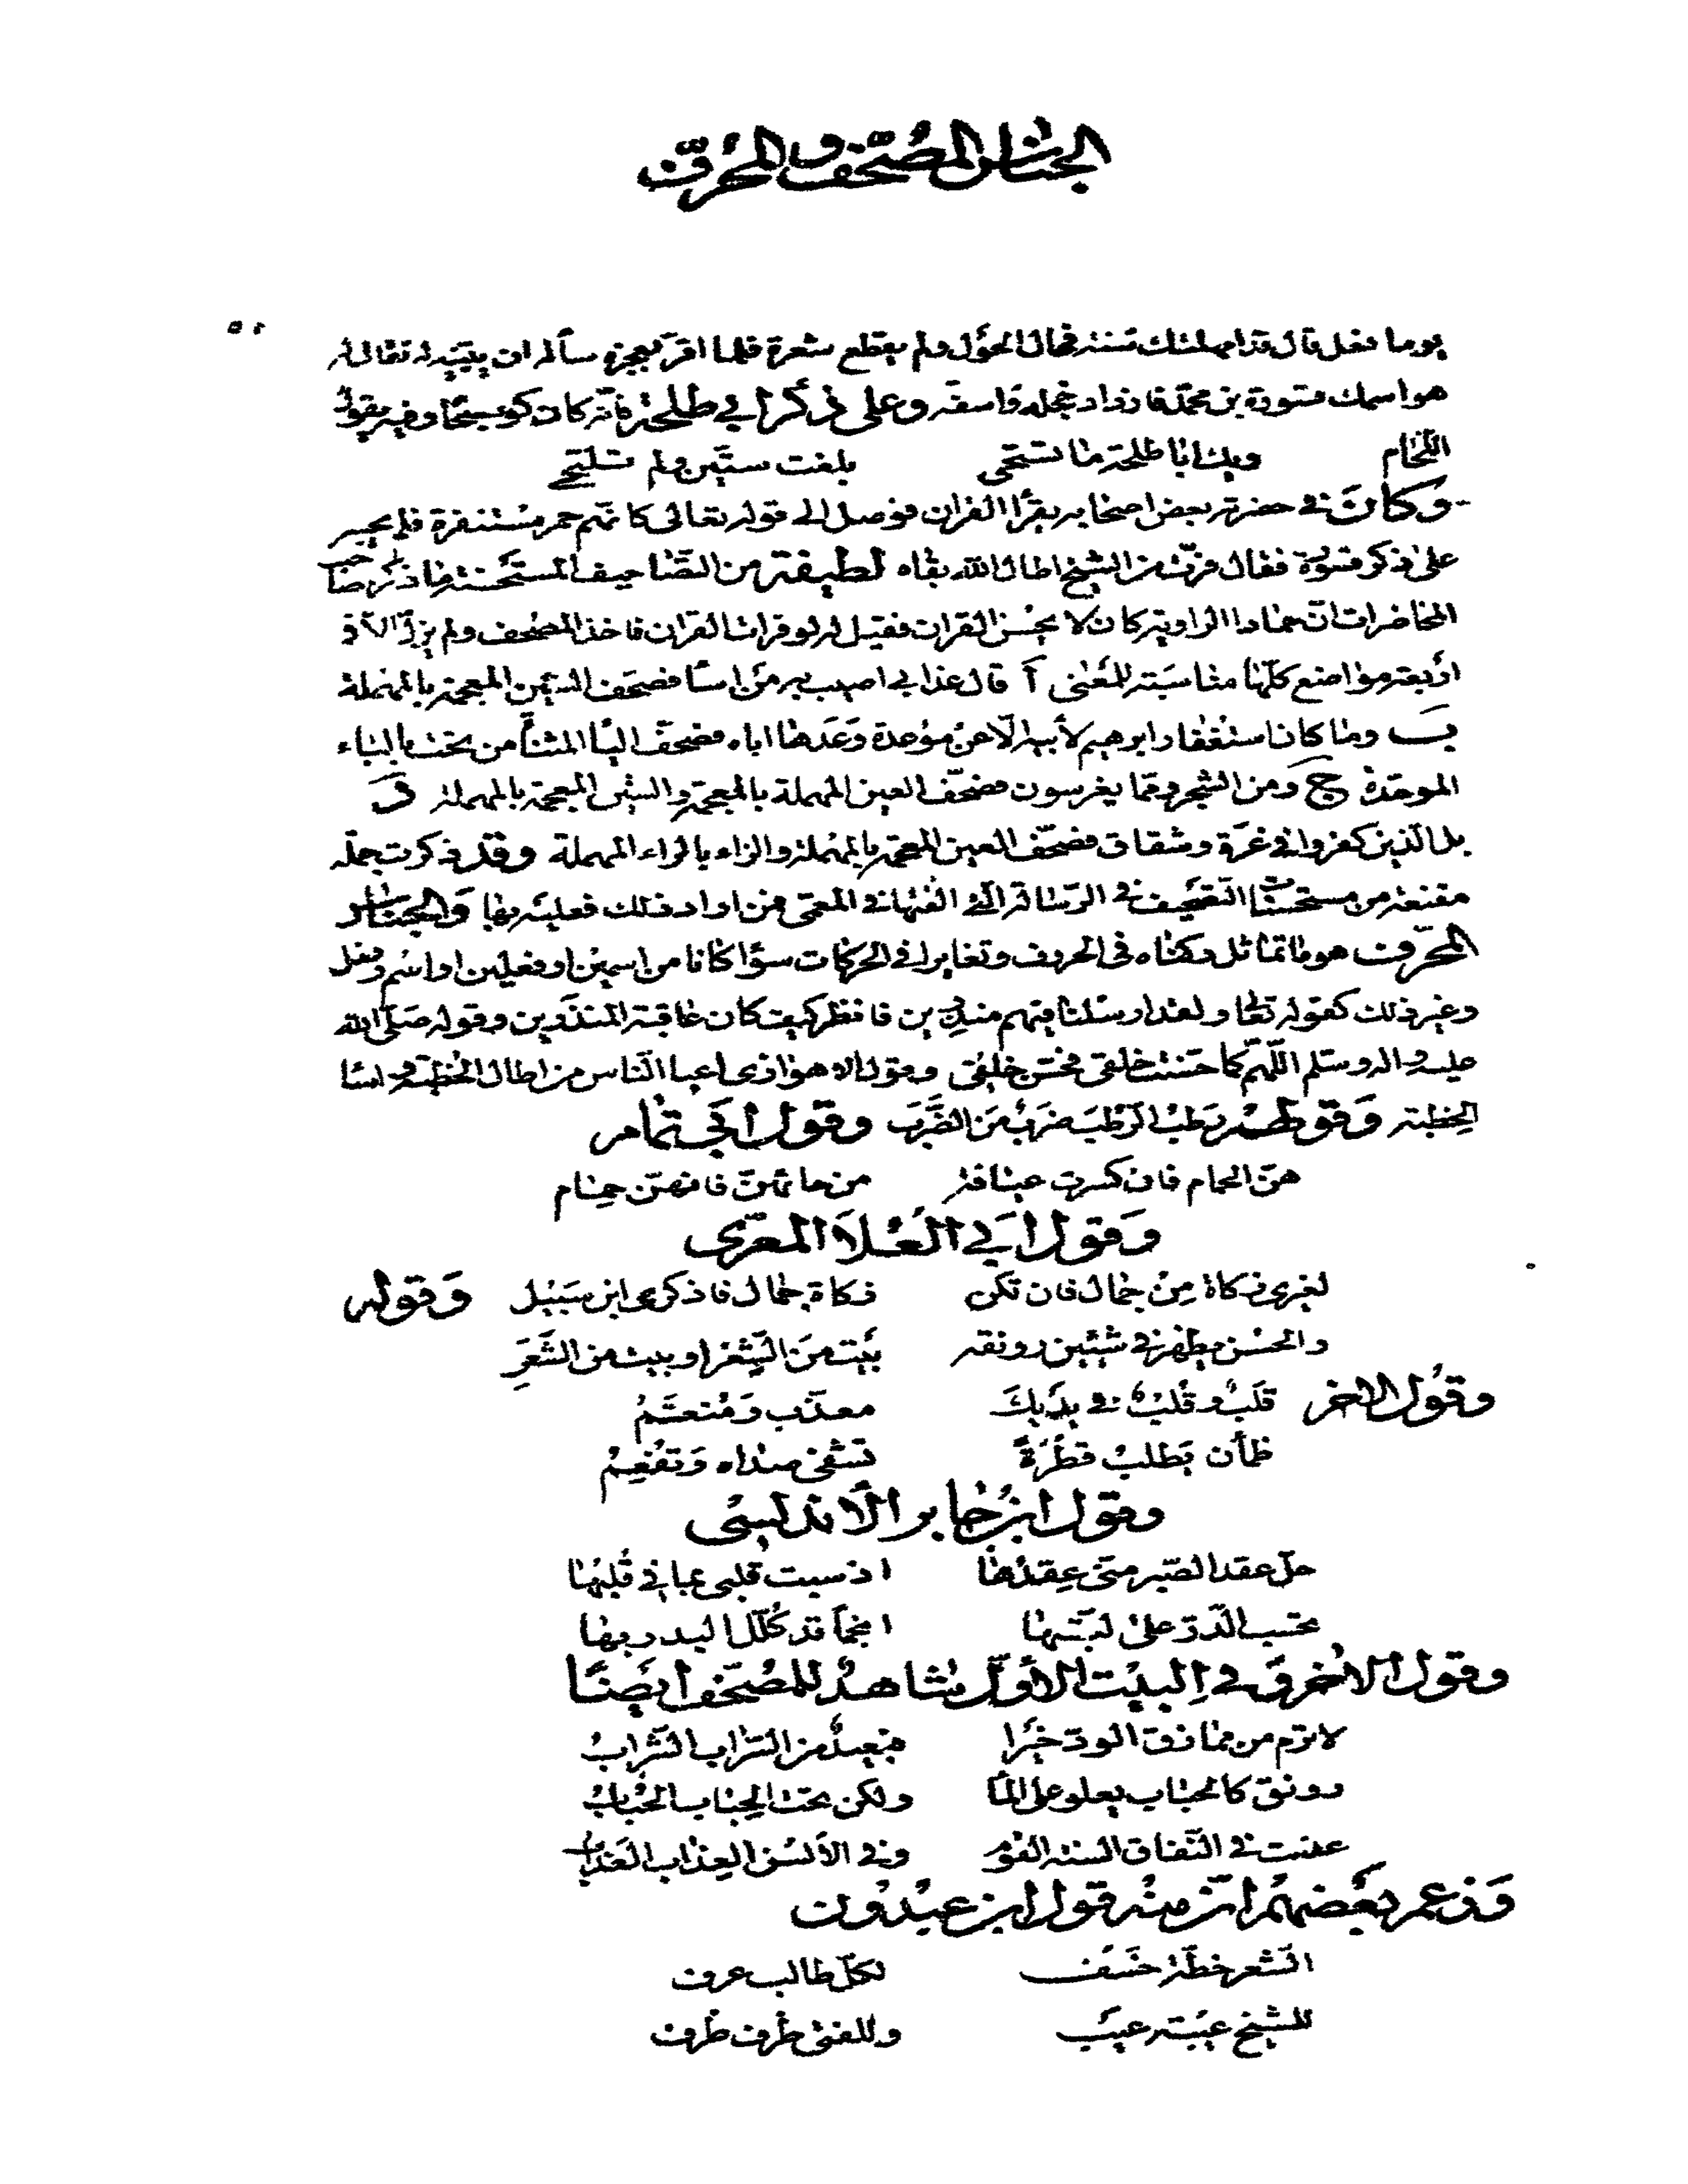 الجناس المصحف والمحرف
يوما فعل قال قد امهلتك سنة فحال الحول ولم يقطع شعرة فلما اقر بعجزه سأله ان يبينه له فقال له
هو اسمك فسورة بن محمد فازداد خجله واسفه وعلى ذكر ابي طلحة فانه كان كوسجا وفيه يقول
اللحام ويك ابا طلحة ما تستحي بلغت ستين ولم تلتحي
وكان في حضرته بعض اصحابه يقرأ القران فوصل الى قوله تعالى كانهم حمر مستنفرة فلم يجسر
على ذكر قسورة فقال فرت من الشيخ اطال الله بقاه لطيفة من التصاحيف المستحسنة ما ذكره صاحب
المحاضرات ان حمادا الراوية كان لا يحسن القران فقيل له لو قرات القران فاخذ المصحف ولم يزل الا في
اربعة مواضع كلها مناسبة للمعنى آ قال عذابي اصيب به من اسا فصحف الشين المعجمة بالمهملة
ب وما كان استغفار ابرهيم لأبيه الا عن موعدة وعدها اباه فصحف اليا المثناة من تحت بالباء
الموحدة ج ومن الشجر ومما يغرسون فصحف العين المهملة بالمعجمة والشين المعجمة بالمهملة د
بل الذين كفروا في غرة وشقاق فصحف العين المهملة بالمعجمة والزاء بالراء المهملة وقد ذكرت جملة
مقنعة من مستحسنات التصحيف في الرسالة التي الفتها في المعمى فمن اراد ذلك فعليه بها والجناس
المحرف هو ما تماثل ركناه في الحروف وتغايرا في الحركات سوا كانا من اسمين او فعلين او اسم وفعل
وغير ذلك كقوله تعالى ولقد ارسلنا فيهم منذرين فانظر كيف كان عاقبة المنذرين وقوله صلى الله
عليه واله وسلم اللهم كما حسنت خلقي فحسن خلقي وقول الاهوازي اعيا الناس من اطال الخطبة واسا
الخطبة وقولهم رطب الرطب ضرب من الضرب وقول ابي تمام
هن الحمام فان كسرت عيافة من حائهن فانهن حمام
وقول ابي العلا المعري
لغيري زكاة من جمال فان تكن زكاة جمال فاذكري ابن سبيل وقوله
والحسن يظهر في شيئين رونقه بيت من الشعر او بيت من الشعر
وقول الاخر قلب وقلب في يديك معذب ومنعم
ظمأن يطلب قطرة تشفي صداه وتفعم
وقول ابن جابر الاندلسي
حل عقد الصبر مني عقدها اذ سبت قلبي بما في قلبها
تحسب الدر على لبتها انجما قد كلل البدر بها
وقول الاخر وفي البيت الاول شاهد للمصحف ايضا
لا ترم من مماذق الود خيرا فبعيد من السراب الشراب
رونق كالحباب يعلو على الما ولكن تحت الحباب الحباب
عذبت في النفاق السنة القوم وفي الألسن العذاب العذاب
وزعم بعضهم ان منه قول ابن عبدون
الشعر خطة خسف لكل طالب عرف
للشيخ عيبة عيب وللفتى ظرف ظرف